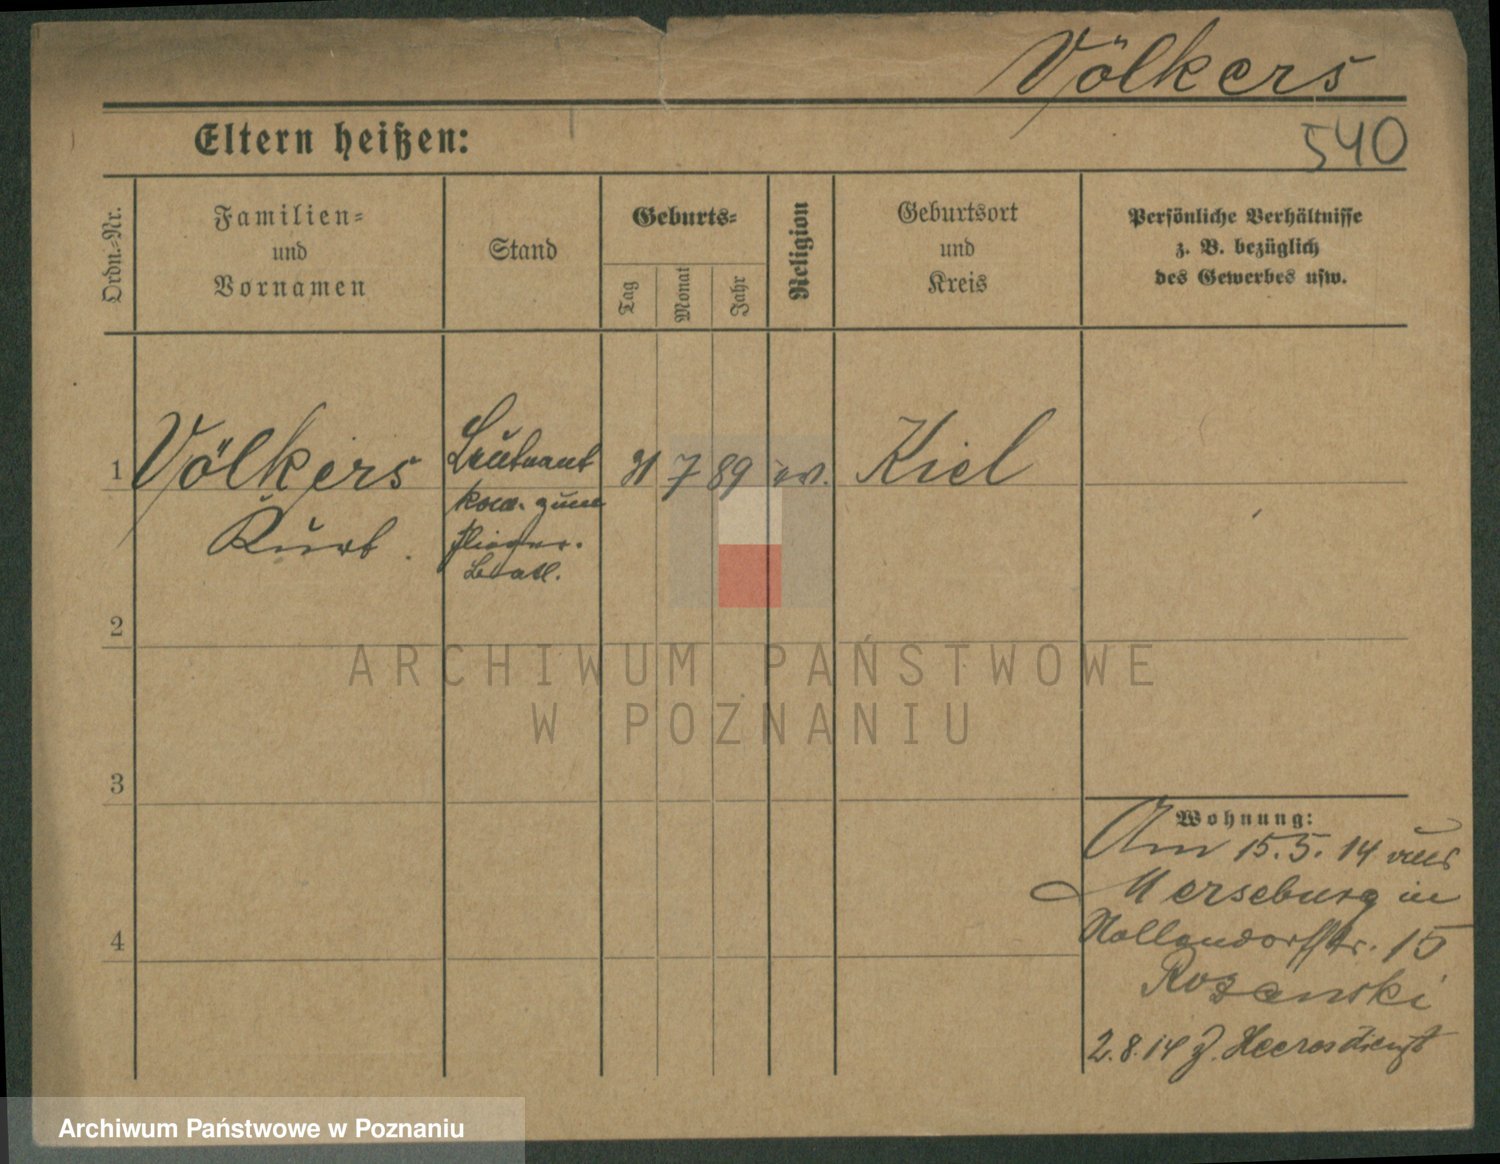 Völkers
540
Eltern heißen:
Ordn.-Nr.
Familien-
und
Vornamen
Stand
Geburts-
Tag
Monat
Jahr
Religion
Geburtsort
und
Kreis
Persönliche Verhältnisse
z. B. bezüglich
des Gewerbes usw.
1 Völkers Leutnant 31 7 89 ev. Kiel
Kurt. kom. zum
Flieger-
Batl.
2
3
4
Wohnung:
Am 15.5.14 aus
Merseburg in
Nollendorfstr. 15
2.8.14 z. Heeresdienst
ARCHIWUM PAŃSTWOWE
W POZNANIU
Archiwum Państwowe w Poznaniu